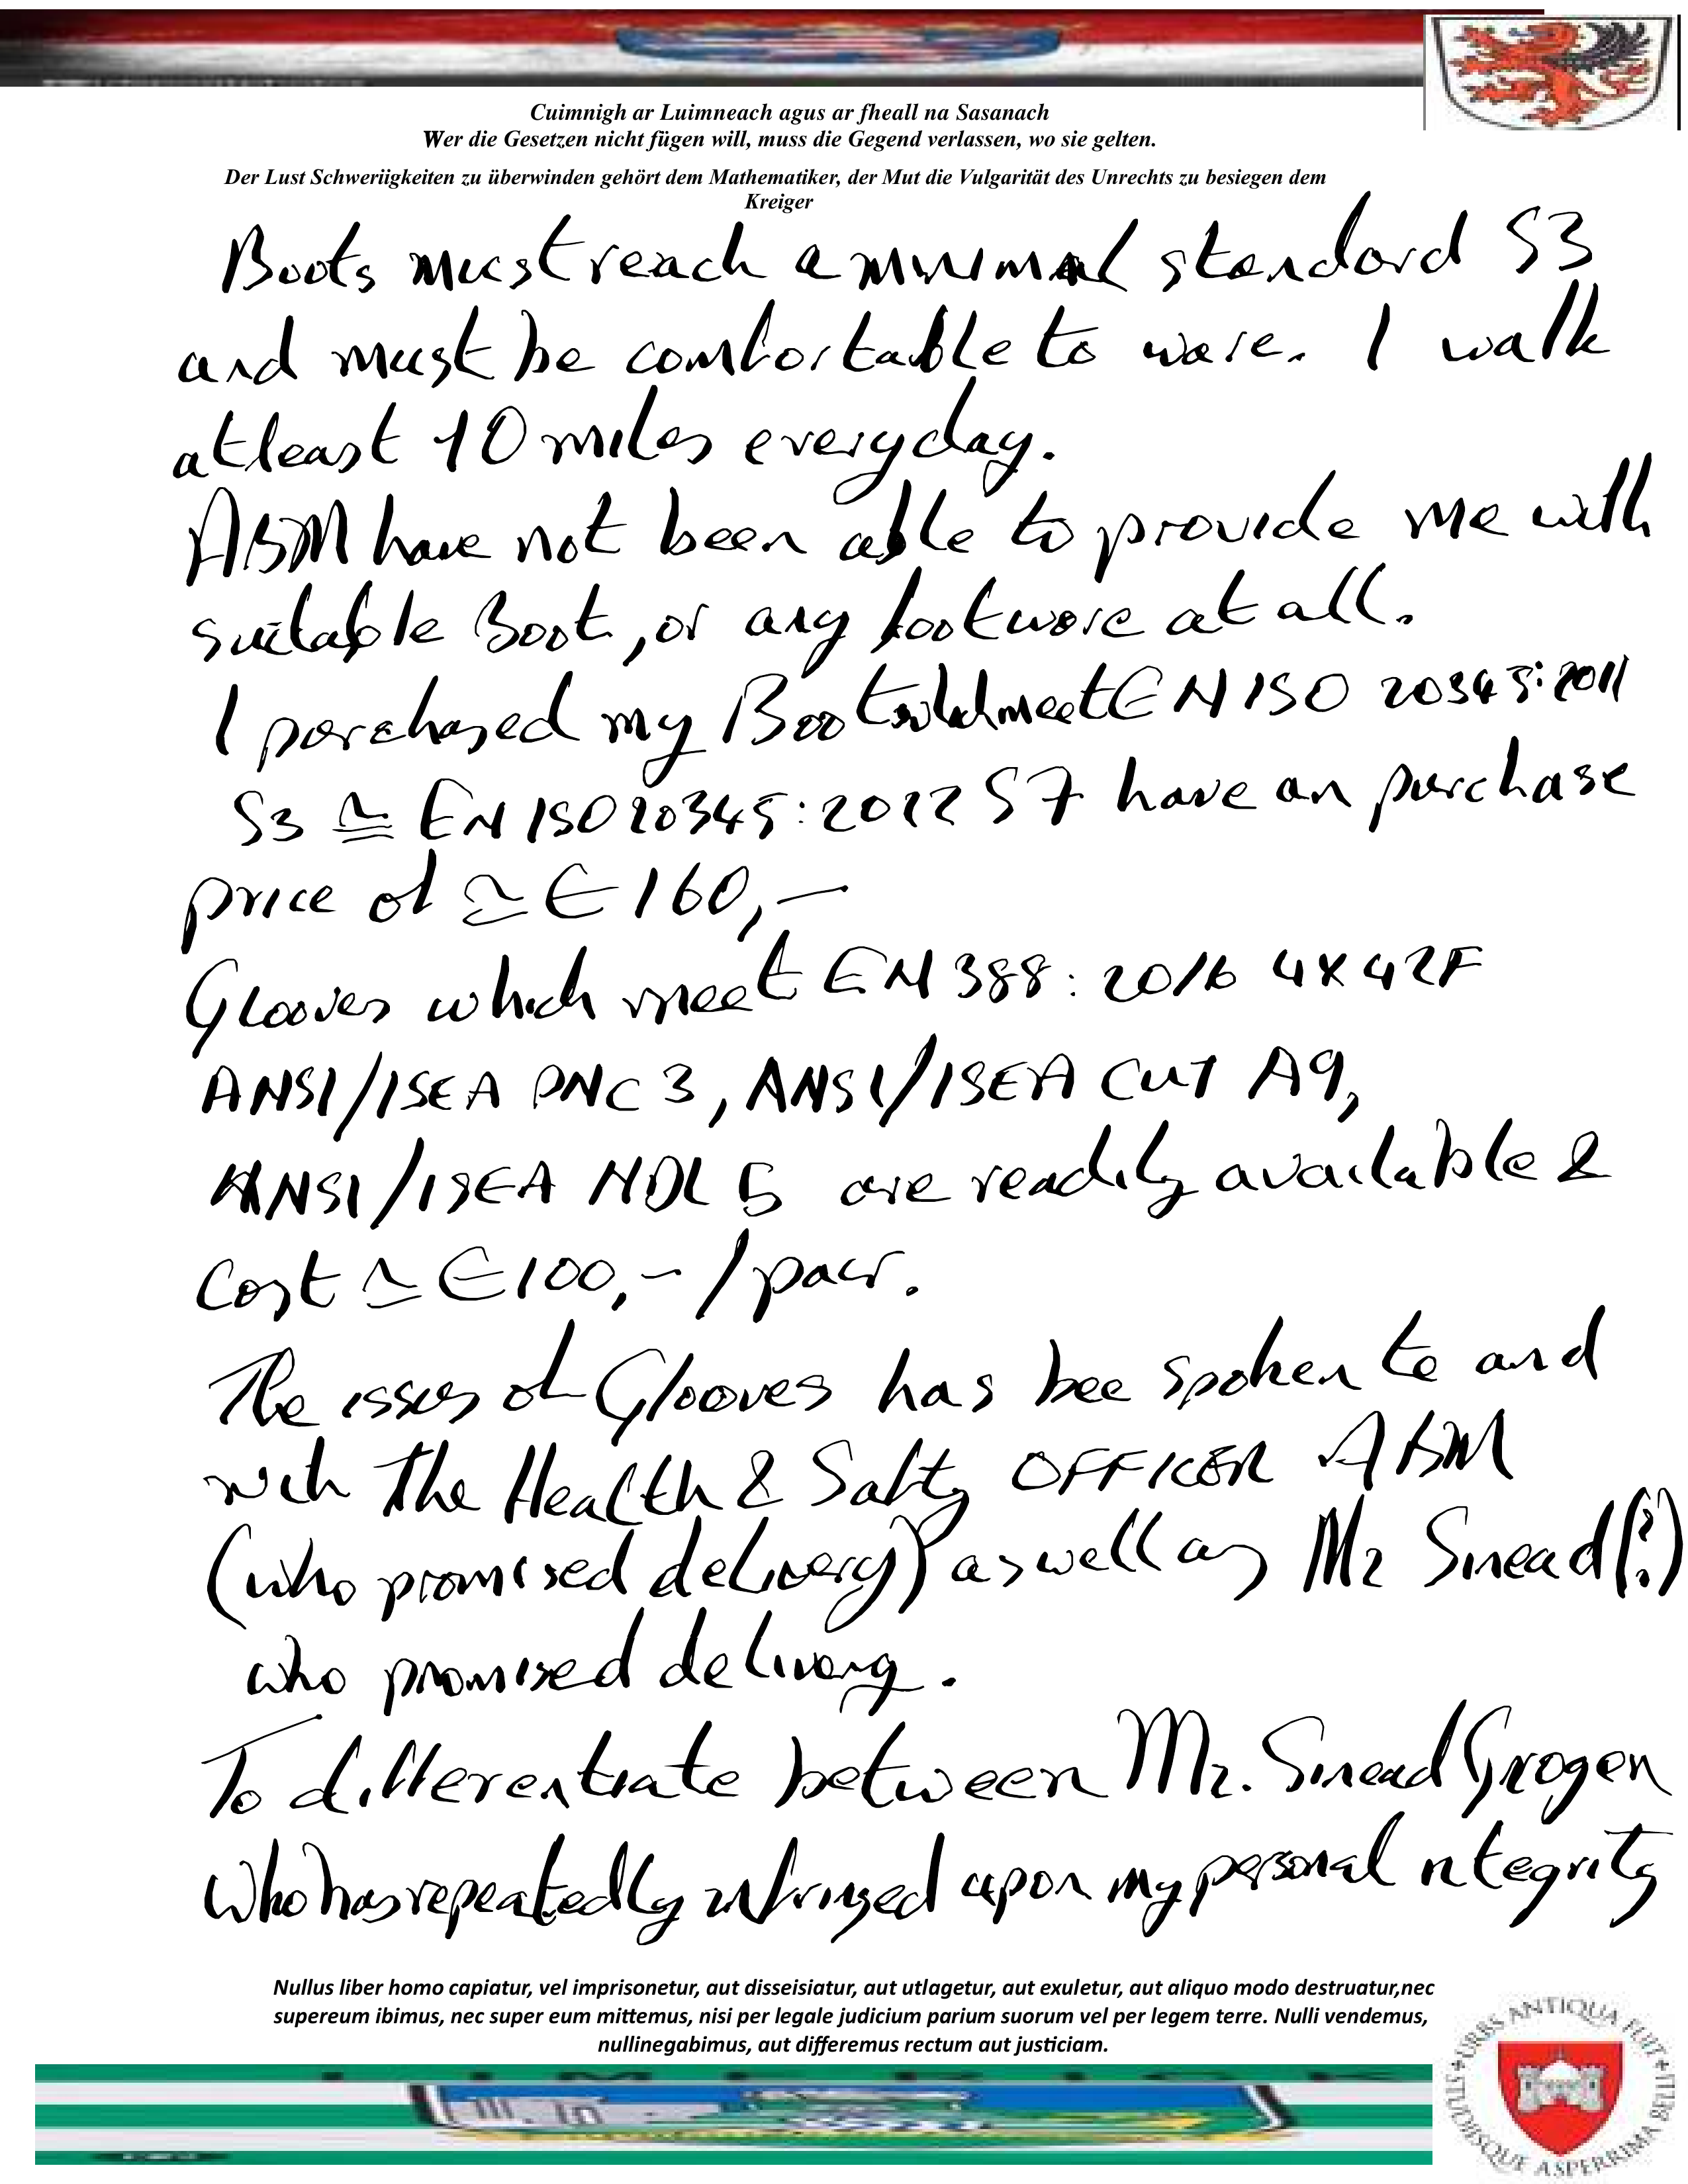 Cuimnigh ar Luimneach agus ar fheall na Sasanach
Wer die Gesetzen nicht fügen will, muss die Gegend verlassen, wo sie gelten.
Der Lust Schweriigkeiten zu überwinden gehört dem Mathematiker, der Mut die Vulgarität des Unrechts zu besiegen dem
Kreiger
Boots must reach a minimal standard S3
and must be comfortable to ware. I walk
atleast 10 miles everyday.
ABM have not been able to provide me with
suitable Boot, or any footware at all.
I purchased my Boots meet EN ISO 20345:2011
S3 ≅ EN ISO 20345:2022 S7 have an purchase
price of ≃ € 160,—
Glooves which meet EN 388:2016 4X42F
ANSI/ISEA PNC 3, ANSI/ISEA CUT A9,
ANSI/ISEA NDL 5 are readily available &
cost ≃ € 100,- / pair.
The issues of Glooves has bee spoken to and
with The Health & Safty OFFICER ABM
(who promised delivery) aswell as Mr Sinead (?)
who promised delivery.
To differentiate between Mr. Sinead Grogen
who has repeatedly infringed upon my personal integrity
Nullus liber homo capiatur, vel imprisonetur, aut disseisiatur, aut utlagetur, aut exuletur, aut aliquo modo destruatur,nec
supereum ibimus, nec super eum mittemus, nisi per legale judicium parium suorum vel per legem terre. Nulli vendemus,
nullinegabimus, aut differemus rectum aut justiciam.
URBS ANTIQUA FUIT STUDIISQUE ASPERRIMA BELLI